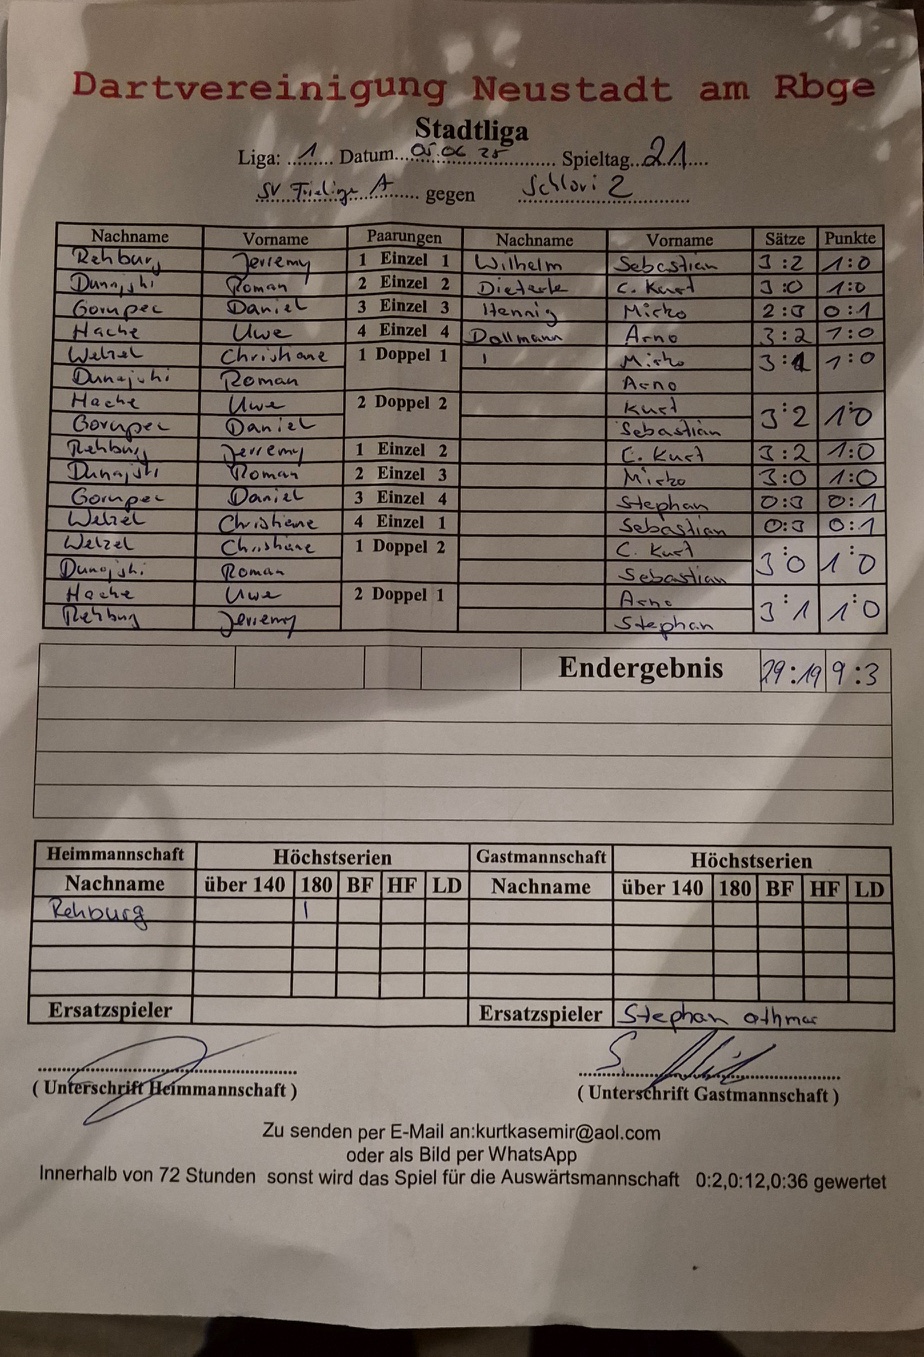 Dartvereinigung Neustadt am Rbge
Stadtliga
Liga: 1 Datum 05.06.25 Spieltag 21
SV Frielinge A gegen Schlori 2
Nachname Vorname Paarungen Nachname Vorname Sätze Punkte
Rehburg Jerremy 1 Einzel 1 Wilhelm Sebastian 3:2 1:0
Dunajski Roman 2 Einzel 2 Dieterle C. Kurt 3:0 1:0
Gornpec Daniel 3 Einzel 3 Hennig Mirko 2:3 0:1
Hache Uwe 4 Einzel 4 Dollmann Arno 3:2 1:0
Welzel Christiane 1 Doppel 1 Mirko 3:1 1:0
Dunajski Roman Arno
Hache Uwe 2 Doppel 2 Kurt 3:2 1:0
Gornpec Daniel Sebastian
Rehburg Jerremy 1 Einzel 2 C. Kurt 3:2 1:0
Dunajski Roman 2 Einzel 3 Mirko 3:0 1:0
Gornpec Daniel 3 Einzel 4 Stephan 0:3 0:1
Welzel Christiane 4 Einzel 1 Sebastian 0:3 0:1
Welzel Christiane 1 Doppel 2 C. Kurt 3:0 1:0
Dunajski Roman Sebastian
Hache Uwe 2 Doppel 1 Arno 3:1 1:0
Rehburg Jerremy Stephan
Endergebnis 29:19 9:3
Heimmannschaft Höchstserien Gastmannschaft Höchstserien
Nachname über 140 180 BF HF LD Nachname über 140 180 BF HF LD
Rehburg I
Ersatzspieler Ersatzspieler Stephan othmar
( Unterschrift Heimmannschaft ) ( Unterschrift Gastmannschaft )
Zu senden per E-Mail an:kurtkasemir@aol.com
oder als Bild per WhatsApp
Innerhalb von 72 Stunden sonst wird das Spiel für die Auswärtsmannschaft 0:2,0:12,0:36 gewertet